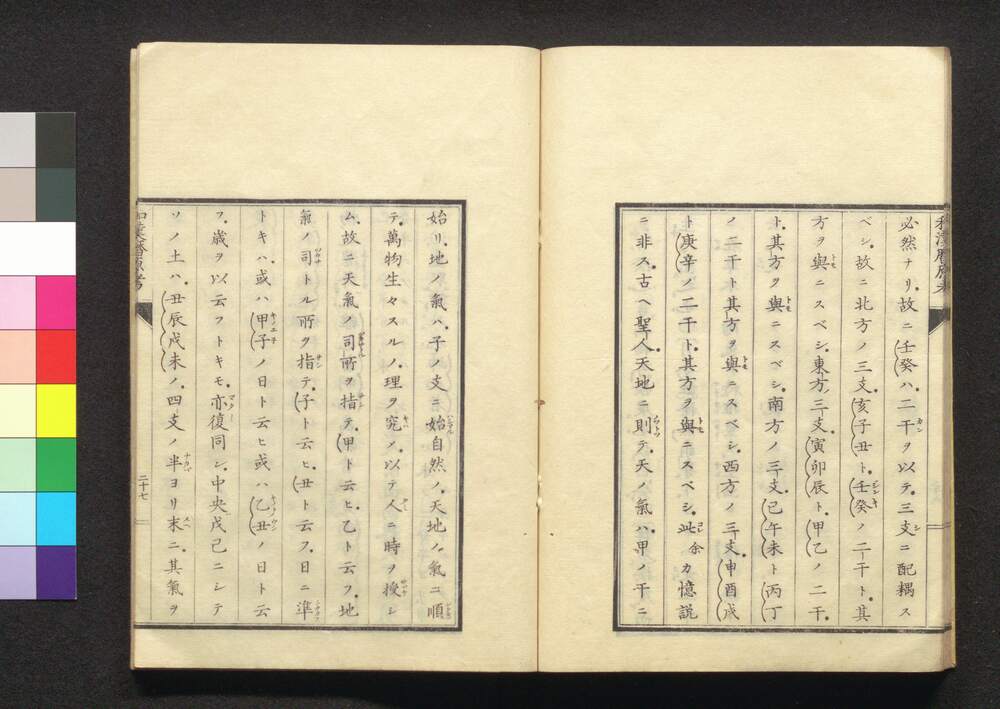 必然ナリ。故ニ壬癸ハ、二干ヲ以テ、三支ニ配耦ス
ベシ。故ニ北方ノ三支、亥子丑ト、壬癸ノ二干ト、其
方ヲ與ニスベシ。東方三支、寅卯辰ト、甲乙ノ二干
ト、其方ヲ與ニスベシ。南方ノ三支、巳午未ト丙丁
ノ二干ト其方ヲ與ニスベシ。西方ノ三支、申酉戌
ト庚辛ノ二干ト、其方ヲ與ニスベシ。此余カ憶説
ニ非ス。古ヘ聖人、天地ニ則テ、天ノ氣ハ、甲ノ干ニ
始リ、地ノ氣ハ、子ノ支ニ始自然ノ、天地ノ氣ニ順
テ、萬物生々スルノ、理ヲ究メ、以テ人ニ時ヲ授シ
ム。故ニ天氣ノ司所ヲ指テ、甲ト云ヒ、乙ト云フ。地
氣ノ司トル所ヲ指テ、子ト云ヒ、丑ト云フ。日ニ準
トキハ、或ハ甲子ノ日ト云ヒ或ハ乙丑ノ日ト云
フ。歳ヲ以云フトキモ、亦復同シ。中央戊己ニシテ
ソノ土ハ、丑辰戌未ノ、四支ノ半ヨリ末ニ、其氣ヲ
二十七